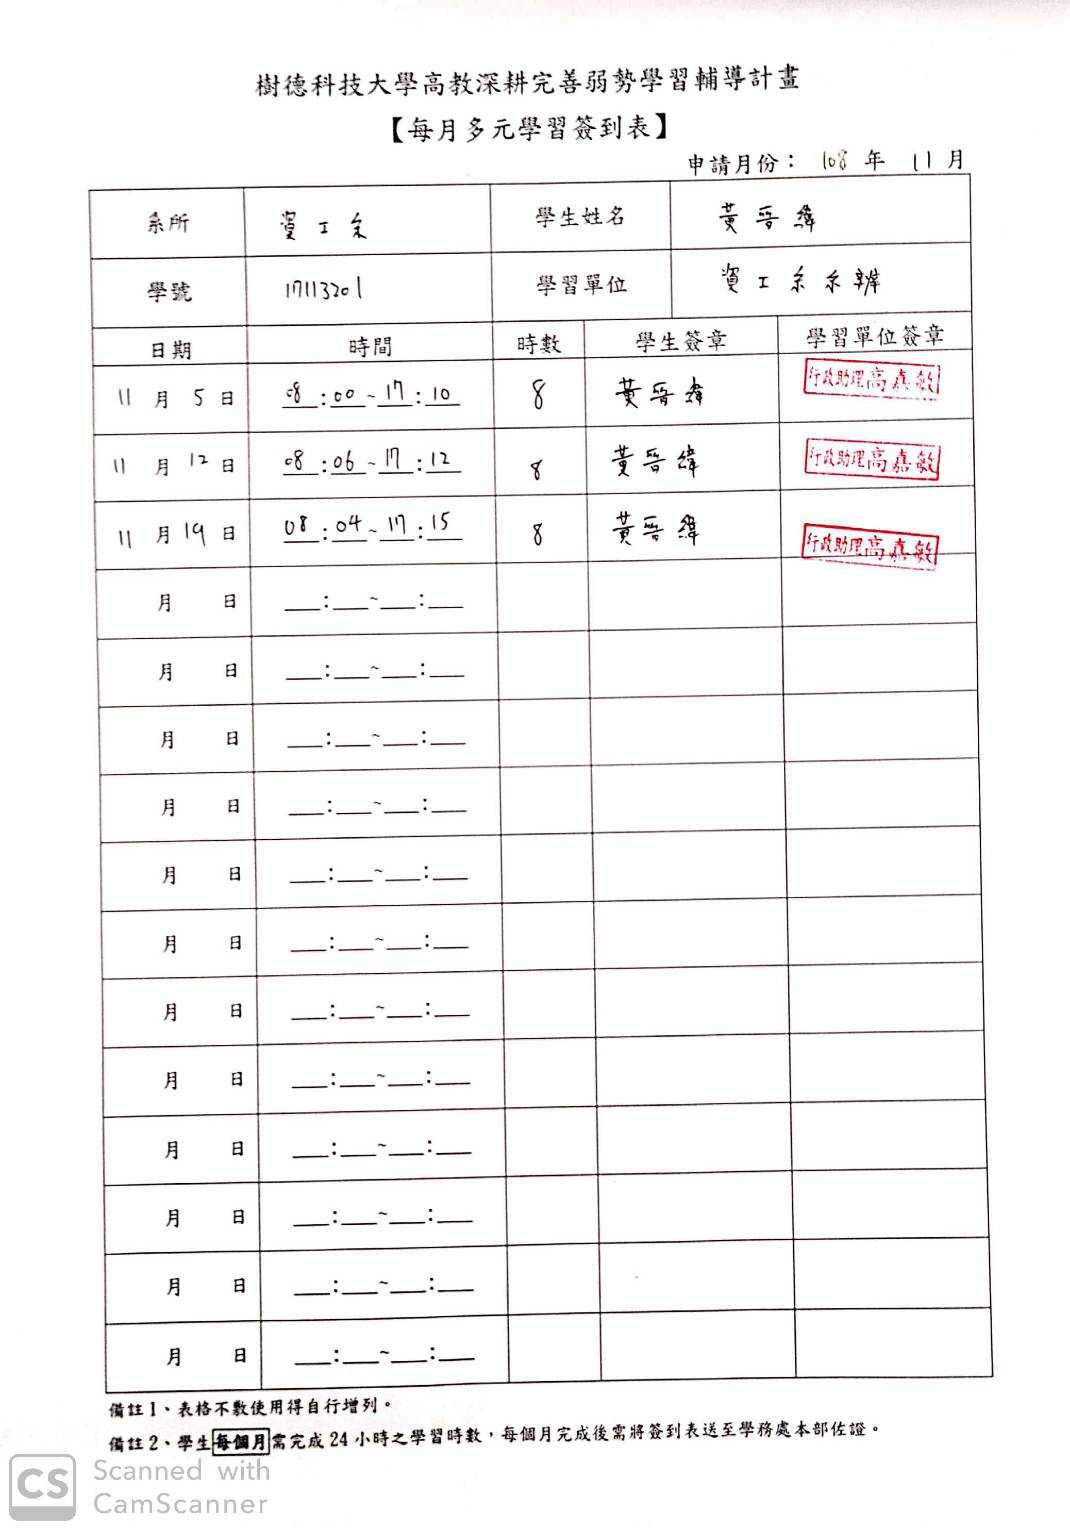 樹德科技大學高教深耕完善弱勢學習輔導計畫
【每月多元學習簽到表】
申請月份： 108 年 11 月
系所 資工系 學生姓名 黃晉緯
學號 17113201 學習單位 資工系系辦
日期 時間 時數 學生簽章 學習單位簽章
11 月 5 日 08:00~17:10 8 黃晉緯 行政助理高嘉敏
11 月 12 日 08:06~17:12 8 黃晉緯 行政助理高嘉敏
11 月 19 日 08:04~17:15 8 黃晉緯 行政助理高嘉敏
月 日 __:__~__:__
月 日 __:__~__:__
月 日 __:__~__:__
月 日 __:__~__:__
月 日 __:__~__:__
月 日 __:__~__:__
月 日 __:__~__:__
月 日 __:__~__:__
月 日 __:__~__:__
月 日 __:__~__:__
月 日 __:__~__:__
月 日 __:__~__:__
備註1、表格不敷使用得自行增列。
備註2、學生每個月需完成24小時之學習時數，每個月完成後需將簽到表送至學務處本部佐證。
CS Scanned with
CamScanner